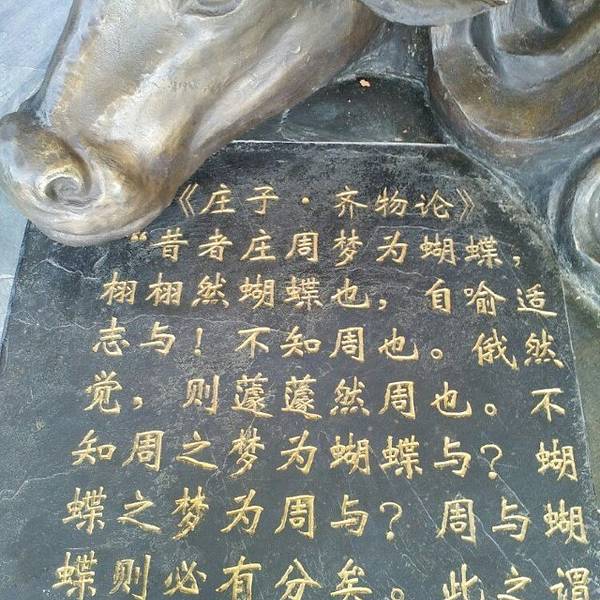 《庄子·齐物论》
“昔者庄周梦为蝴蝶，
栩栩然蝴蝶也，自喻适
志与！不知周也。俄然
觉，则蘧蘧然周也。不
知周之梦为蝴蝶与？蝴
蝶之梦为周与？周与蝴
蝶则必有分矣。此之谓